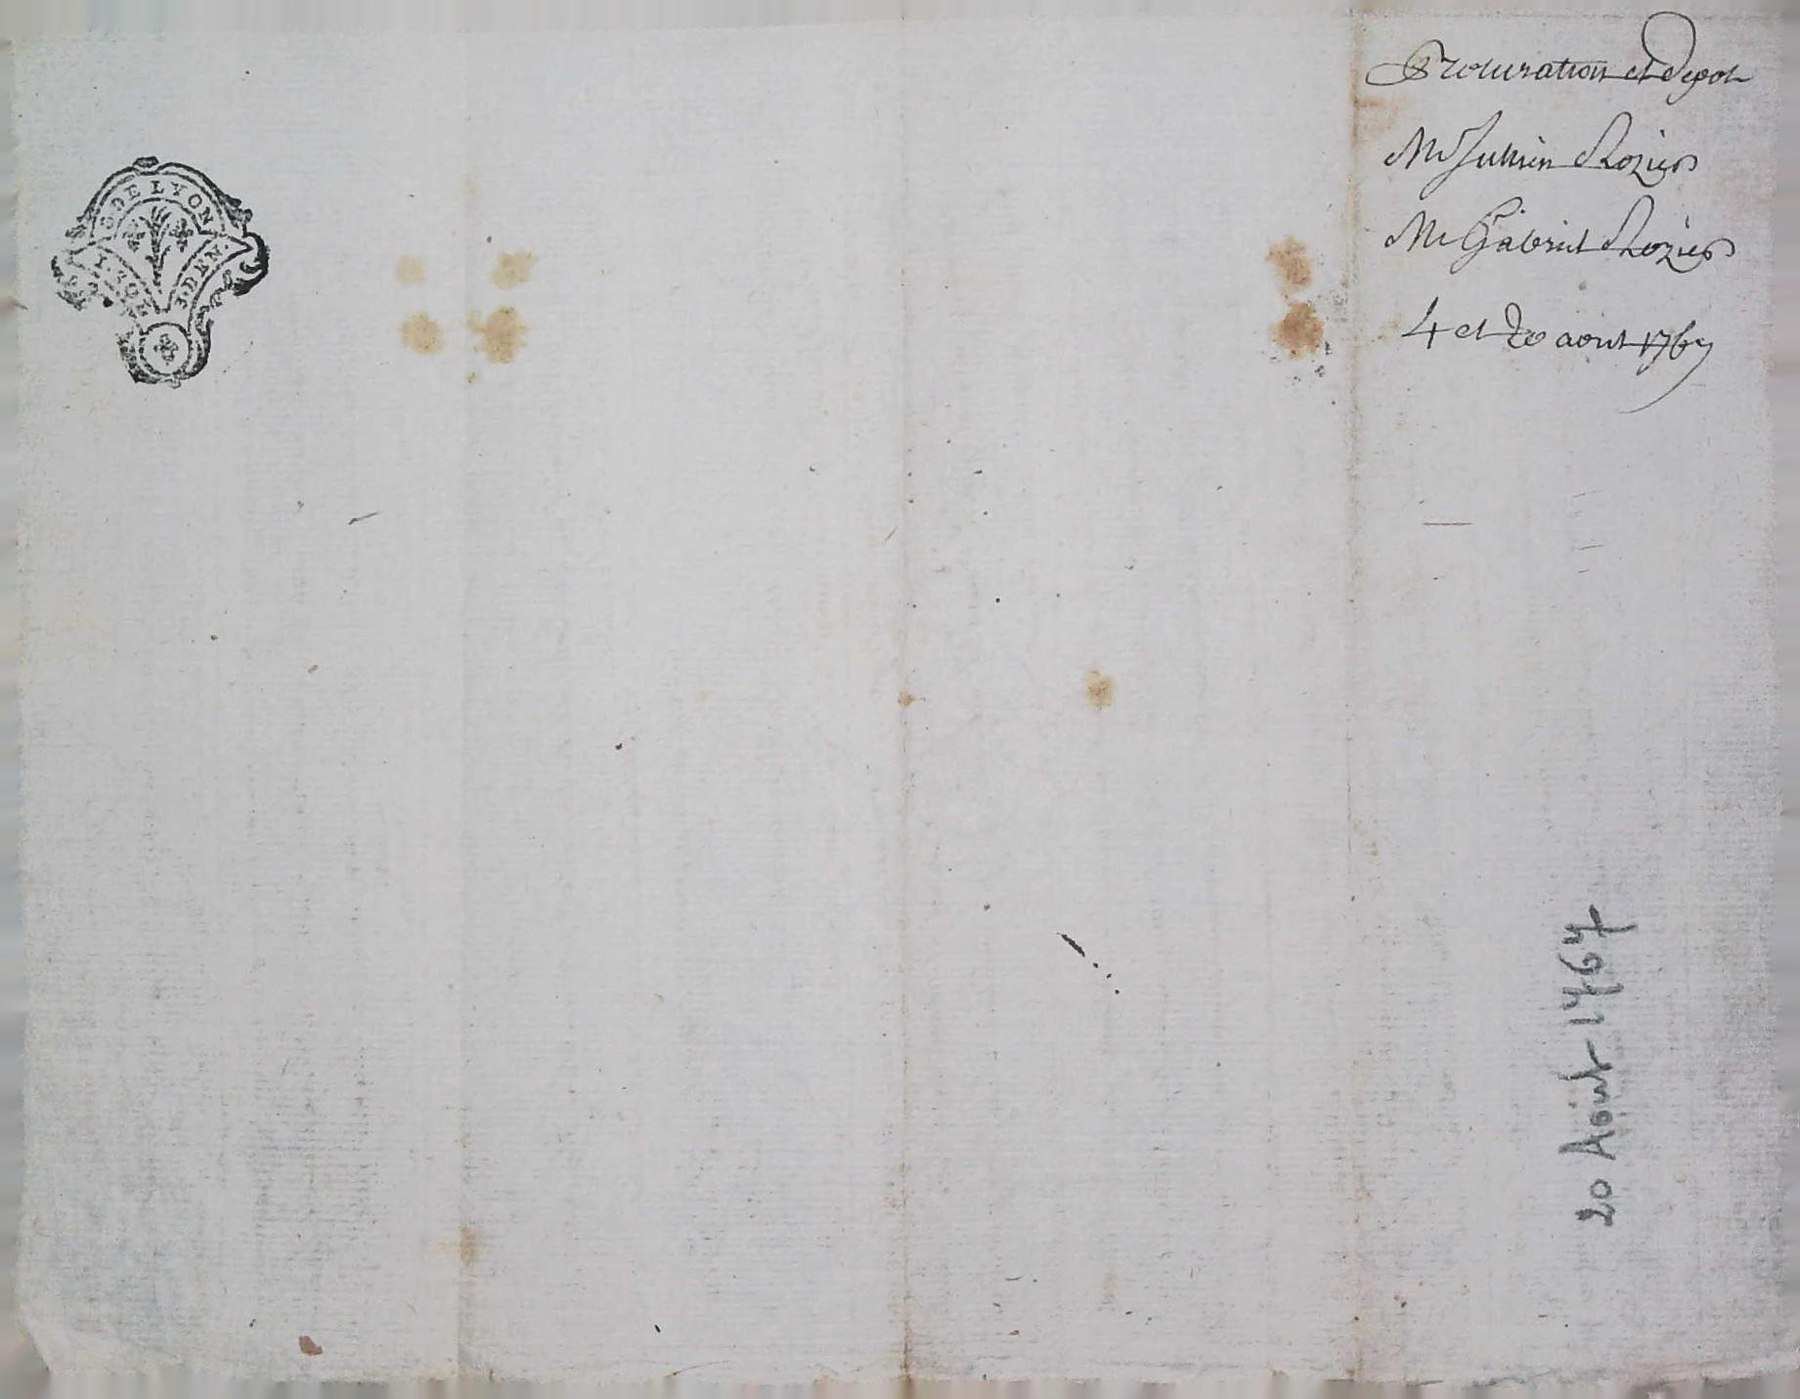 G. DE LYON
3. DEN.
Procuration et depot
Mr Jullien Rozier
Mr Gabriel Rozier
4 et 20 aout 1767
20 Août 1767